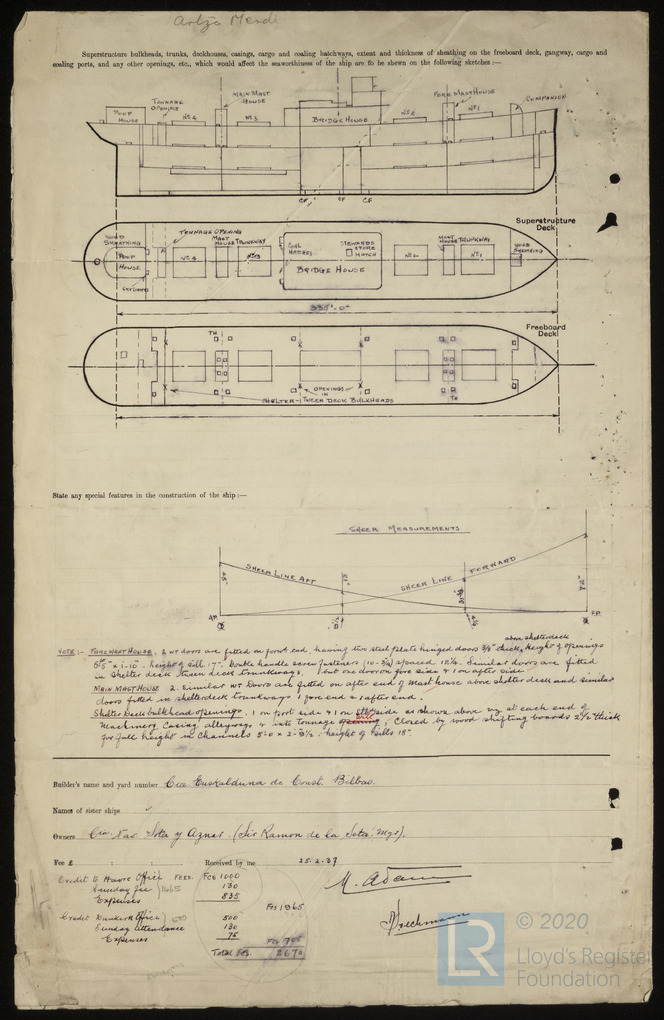 Artza Mendi
Superstructure bulkheads, trunks, deckhouses, casings, cargo and coaling hatchways, extent and thickness of sheathing on the freeboard deck, gangway, cargo and
coaling ports, and any other openings, etc., which would affect the seaworthiness of the ship are to be shewn on the following sketches :—
POOP HOUSE
TONNAGE OPENING
Nº 4
MAIN MAST HOUSE
Nº 3
BRIDGE HOUSE
Nº 2
FORE MAST HOUSE
Nº 1
COMPANION
CF
CF
Superstructure Deck
WOOD SHEATHING
POOP HOUSE
SKYLIGHTS
TONNAGE OPENING
Nº 4
MAST HOUSE
TRUNKWAY
Nº 3
COAL HATCHES
STEWARDS STORE HATCH
BRIDGE HOUSE
Nº 2
MAST HOUSE
TRUNKWAY
Nº 1
WOOD SHEATHING
335'-0"
Freeboard Deck
TH
OPENINGS IN
SHELTER-TWEEN DECK BULKHEADS
TH
State any special features in the construction of the ship :—
SHEER MEASUREMENTS
SHEER LINE AFT
SHEER LINE FORWARD
NOTE :- FOREMAST HOUSE. 2 WT doors are fitted on foreend, having two steel plate hinged doors thick, height of openings
above shelterdeck
height of sill 17". Double handle screw fasteners spaced Similar doors are fitted
in shelter deck tween deck trunkways. 1 but one door on fore side & 1 on after side
MAIN MAST HOUSE 2. similar WT Doors are fitted on after end of Mast house above shelter deck and similar
doors fitted in shelterdeck trunkways 1 fore end & 1 after end.
Shelter Deck bulkhead openings. 1 on port side & 1 on side as shown above at each end of
Machinery Casing alleyways & into tonnage well; Closed by wood shifting boards 2½" thick
for full height in Channels height of sills 15".
Builder's name and yard number Cia Euskalduna de Const. Bilbao.
Names of sister ships
Owners Cia Nav. Sota y Aznar. (Sir Ramon de la Sota. Mgr).
Fee £ : : Received by me 25.2.37
Credit to Havre Office FEES. Fcs 1000
Sunday fee 130
Expenses 835
Fcs 1965
Credit Dunkirk Office 500
Sunday attendance 130
Expenses 75
Fcs 705
Total Fcs. 2670
M. Adam
© 2020
LR
Lloyd's Register
Foundation